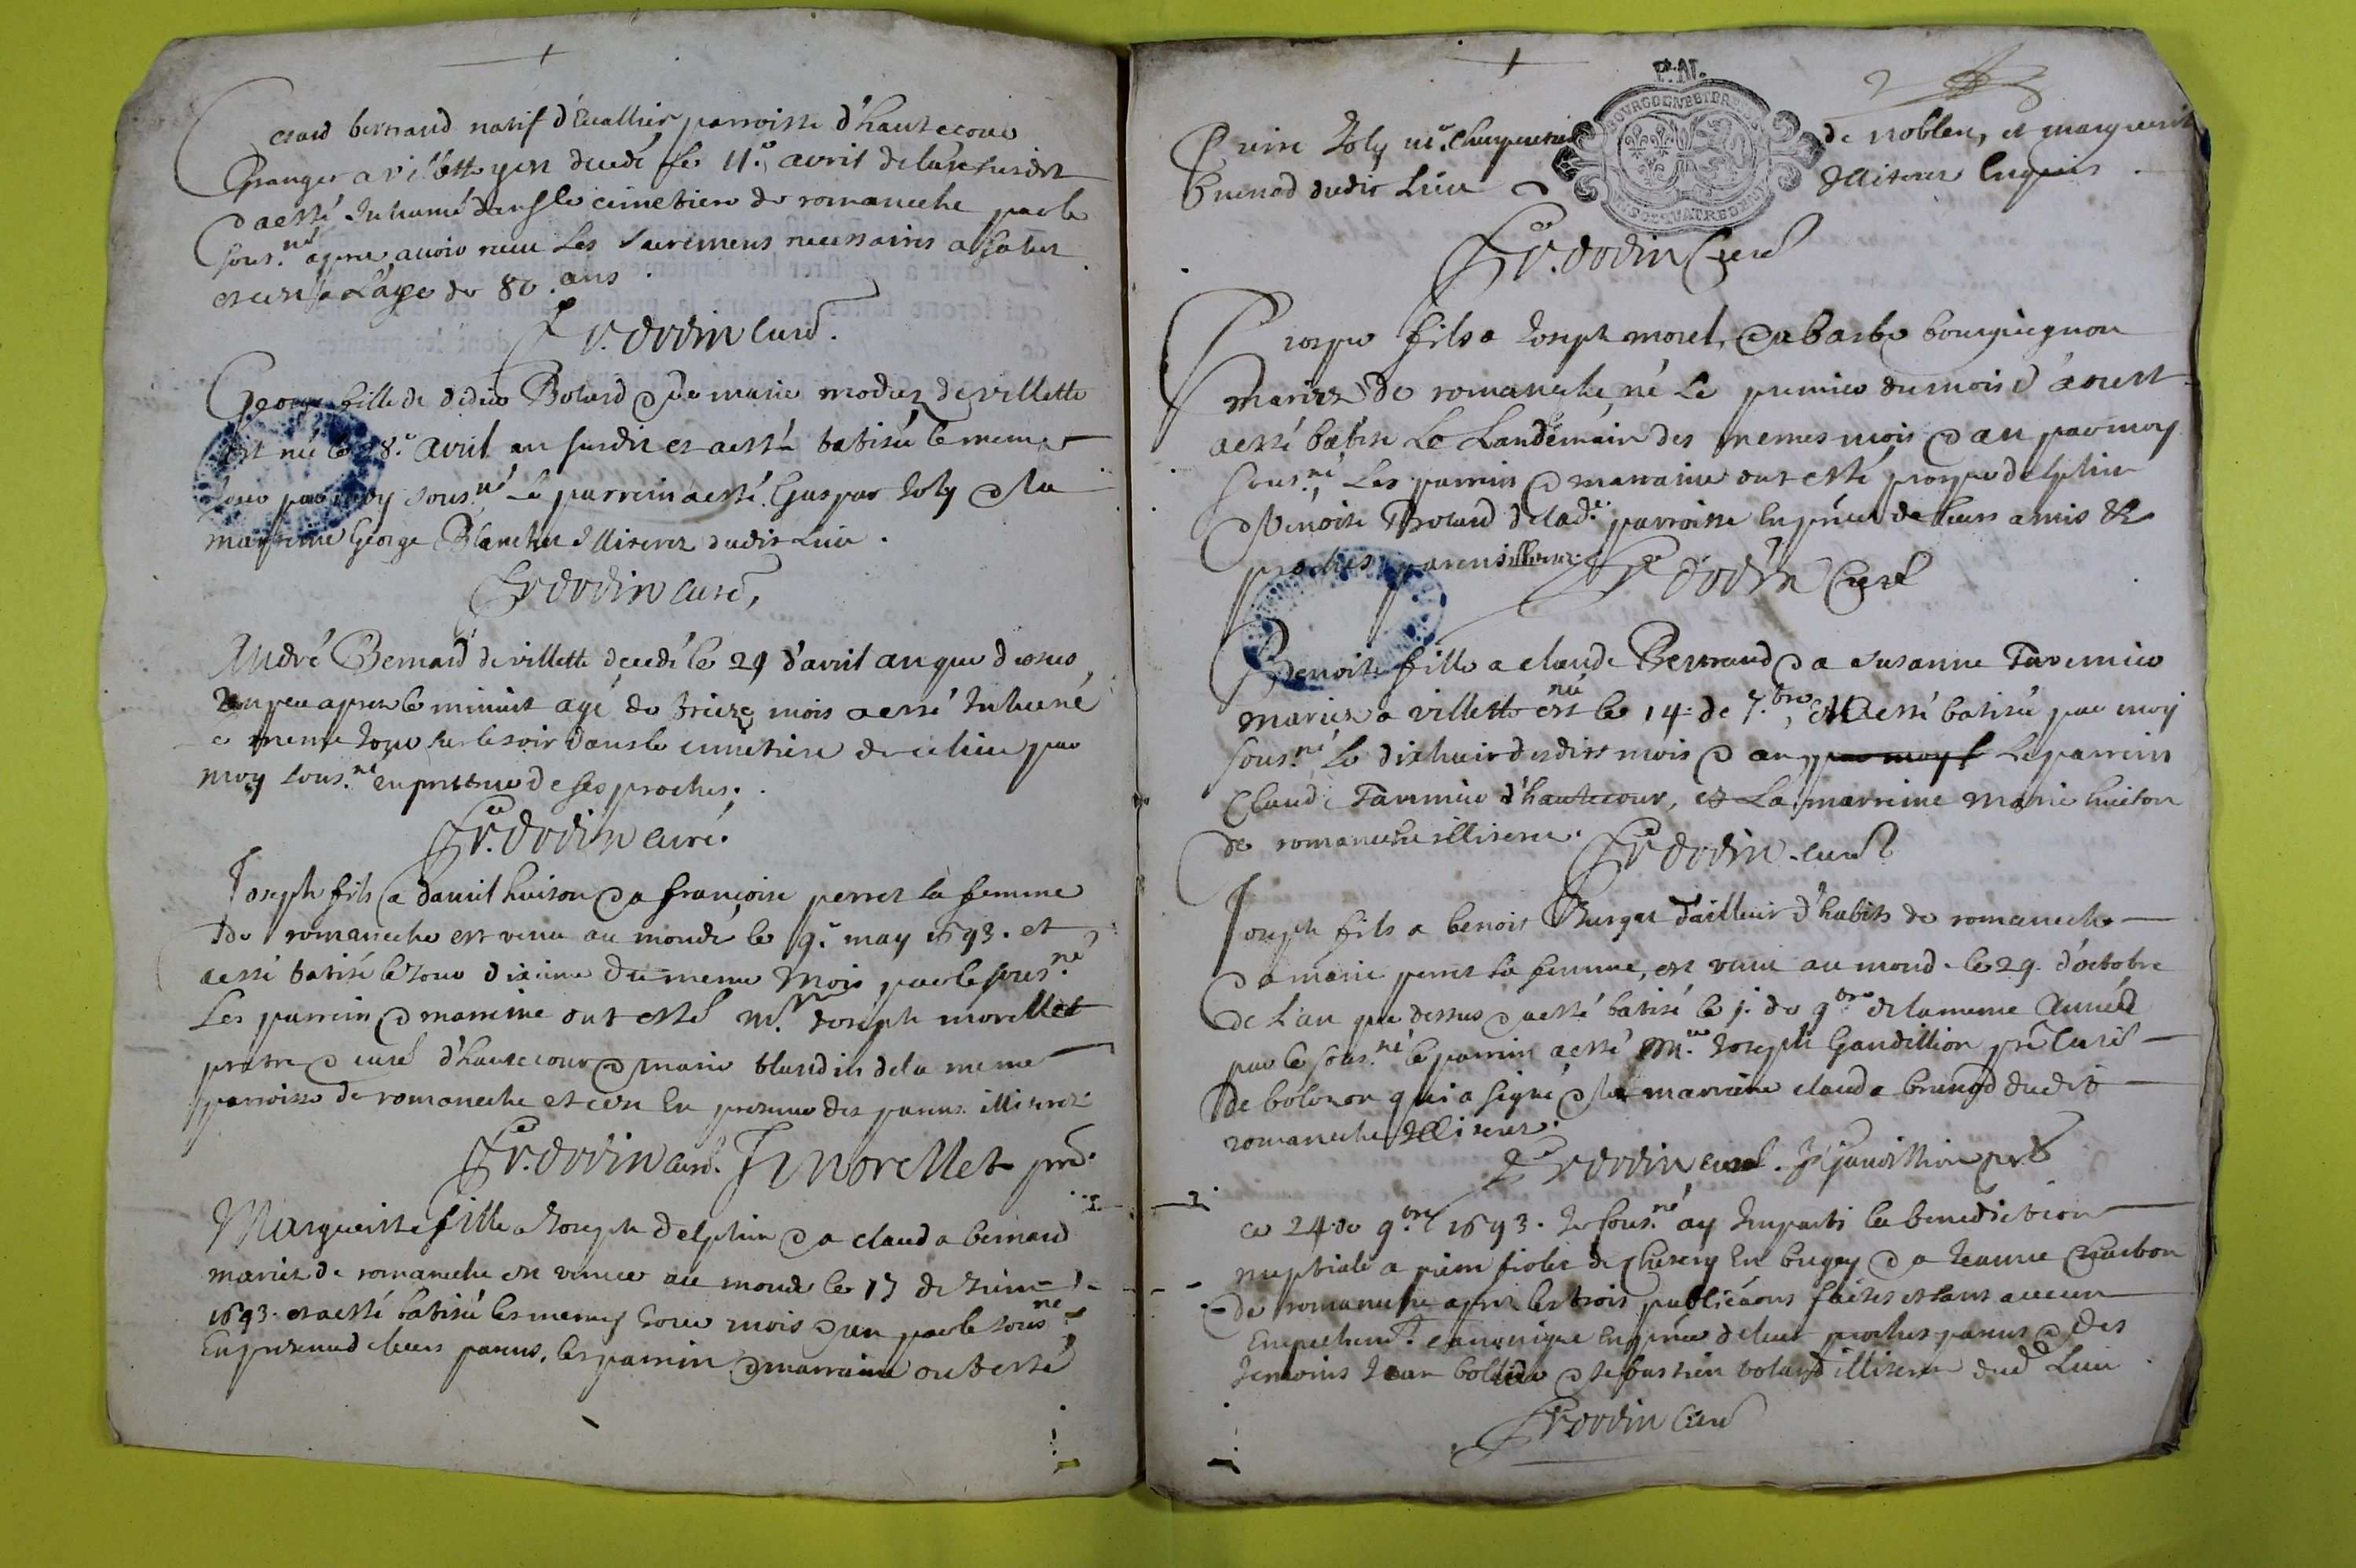 bertrand natif d'Evallier parroisse d'hautecour
Granger a villette yen decedé le 11.e avril de l'an susdit
a esté Inhumé dans le cimetiere de romaneche par le
sous.né apres avoir receu les sacremens necessaires a salut
et ce a l'age de 80. ans
Fr. dodin curé.
George fille de Boland & de marie de villette
est née le 28.e avril an susdit et a esté batisée le meme
jour par moy sous.né le parrein a esté Gaspar Joly & la
marreine George Blanchet Illiterez dudit Lieu.
Fr dodin curé,
André Bernard de villette decedé le 29 d'avril an que dessus
un peu apres le minuit agé de treize mois a esté Inhumé
ce meme jour sur le soir dans le cimetiere de ce lieu par
moy sous.né en presence de ses proches.
Fr. dodin curé.
Joseph fils a daniel huiton & a françoise perret sa femme
de romaneche est venu au monde le 9.e may 1693. et
a esté batisé le jour dixieme du meme mois par le sous.né
Les parrein & marreine ont esté m.re Joseph morellet
pretre & curé d'hautecour & marie blandin de la meme
parroisse de romaneche et ce En presence des parens illiterez.
Fr. dodin curé. J morellet pre.
Marguerite fille a Joseph delphin & a clauda bernard
mariez de romaneche est venue au monde le 17 de Juin
1693. et a esté batisée les memes jour mois & an par le sous.né
En presence de leurs parens. les parrein & marraine ont esté
2
P.AL.
Pierre Joly m.e Charpentier de noblen, et marguerite
brunod dudit Lieu Illiterez Enquis.
Fr. dodin Curé
Prospre fils a Joseph morel, & a barbe bourguignon
mariez de romaneche, né le premier du mois d'aoust
a esté batisé Le Landemain des memes mois & an par moy
sous.né, Les parrein & marraine ont esté prospre delphin
& Benoite Boland de lad.e parroisse En pñce de leurs amis &
proches parens illiterez.
Fr dodin Curé
Benoite fille a claude Bertrand & a susanne Tavernier
mariez a villette est née le 14. de 7.bre, et a esté batisée par moy
sous.né, le dixhuit desdits mois & an par moy s Le parrein
Claude Tavernier d'hautecour, et La marreine marie huiton
de romaneche illiterez.
Fr dodin curé
Joseph fils a benoit Burgat Tailleur d'habits de romaneche
& a marie perret sa femme, est venu au monde le 29. d'octobre
de L'an que dessus & a esté batisé le j. de 9.bre de la meme Année
par le sous.né le parrein a esté M.re Joseph Gaudillion prê Curé
de bolozon qui a signé & la marreine clauda brunod dudit
romaneche Illiterez.
Fr dodin curé. J gaudillion pre
ce 24. de 9.bre 1693. Je sous.né ay Imparti la benediction
nuptiale a pierre fiolet de Chesery En bugey & a Jeanne Charbon
de romaneche apres les trois publicãons faites et sans aucun
Empechem.t canonique En pñce de leur proches parens & des
temoins Jean & sebastien boland illiterez dud Lieu
Fr dodin curé